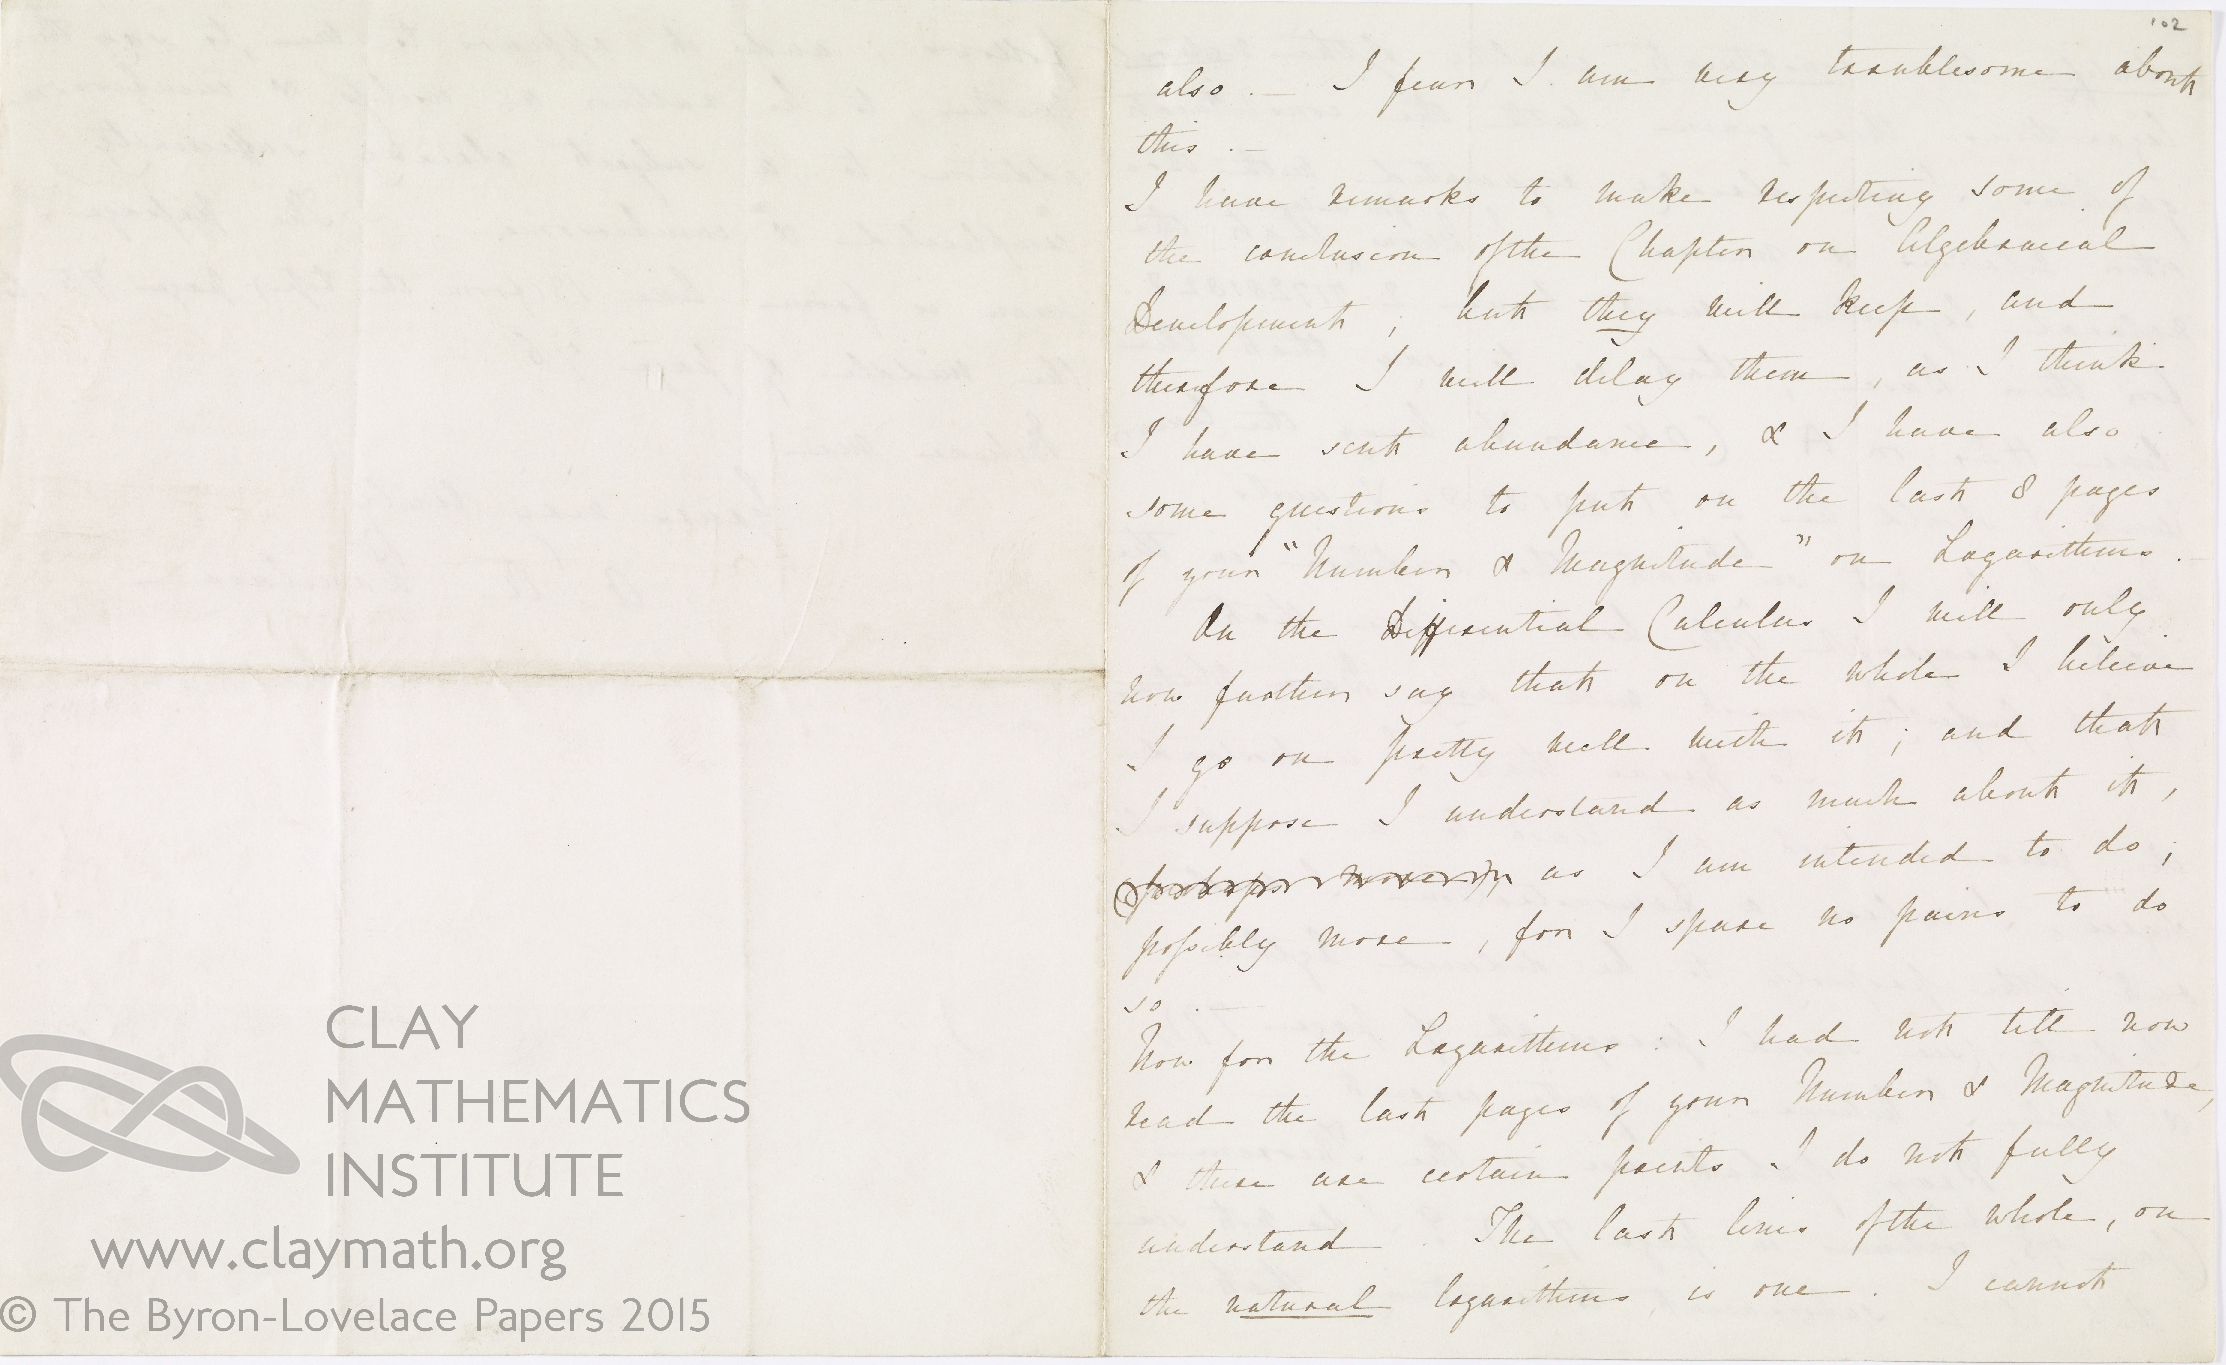 102
also . — I fear I am very troublesome about
this . —
I have remarks to make respecting some of
the conclusion of the Chapter on Algebraical
Development ; but they will keep , and
therefore I will delay them , as I think
I have sent abundance , & I have also
some questions to put on the last 8 pages
of your "Number & Magnitude" on Logarithms . —
On the Differential Calculus I will only
now further say that on the whole I believe
I go on pretty well with it ; and that
I suppose I understand as much about it ,
as I am intended to do ;
possibly more , for I spare no pains to do
so . —
Now for the Logarithms : I had not till now
read the last pages of your Number & Magnitude,
& there are certain points I do not fully
understand . The last lines of the whole , on
the natural logarithms , is one . I cannot
CLAY
MATHEMATICS
INSTITUTE
www.claymath.org
© The Byron-Lovelace Papers 2015